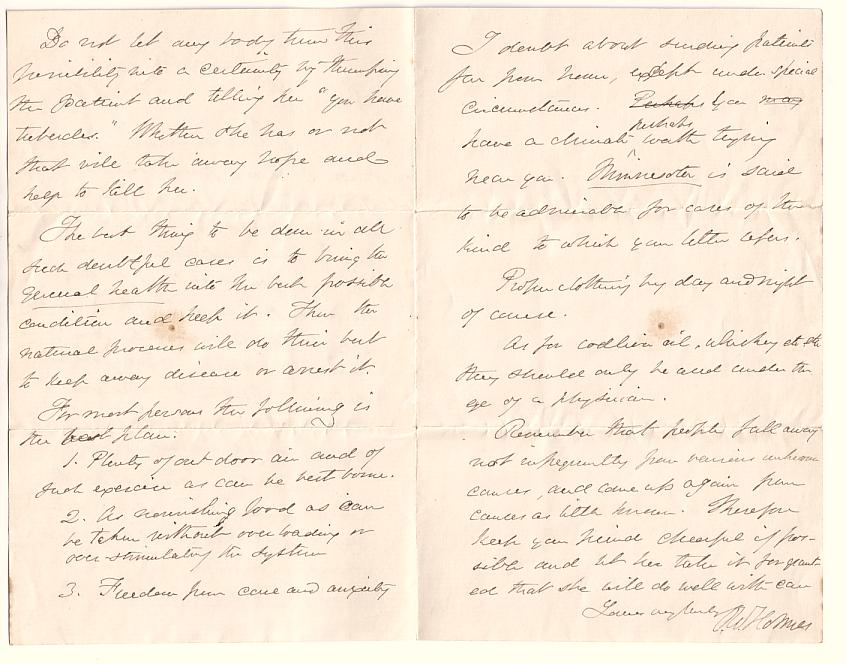 Do not let any body turn this
possibility into a certainty by thumping
the patient and telling her "you have
tubercles." Whether she has or not
that will take away hope and
help to kill her.
The best thing to be done in all
such doubtful cases is to bring the
general health into the best possible
condition and keep it. Then the
natural processes will do their best
to keep away disease or arrest it.
For most persons the following is
the best plan.
1. Plenty of out door air and of
such exercise as can be best borne.
2. As nourishing food as can
be taken without overloading or
over-stimulating the system
3. Freedom from care and anxiety
I doubt about sending patients
far from home, except under special
circumstances. Perhaps You may
perhaps
have a climate worth trying
near you. Minnesota is said
to be admirable for cases of the
kind to which your letter refers.
Proper clothing by day and night
of course.
As for codliver oil, whiskey etc etc
they should only be used under the
eye of a physician.
Remember that people fall away
not infrequently from various unknown
causes, and come up again from
causes as little known. Therefore
keep your friend cheerful if pos-
sible and let her take it for grant
ed that she will do well with care
Yours very truly
O. W. Holmes